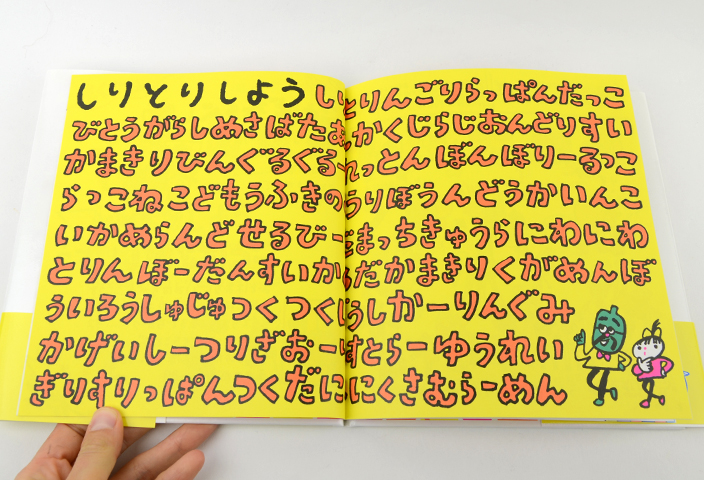 しりとりしよう しりとりんごりらっぱんだっこ
びとうがらしめさばたあかくじらじおんどりすい
かまきりびんぐるぐるーれっとんぼんぼりーるっこ
らっこねこどもうふきのうりぼうんどうかいんこ
いかめらんどせるびーだまっちきゅうらにわにわ
とりんぼーだんすいからだかまきりくがめんぼ
ういろうしゅじゅつくつくぼうしかーりんぐみ
かげいしーつりざおーけすとらーゆうれい
ぎりすりっぱんつくだににくさむらーめん